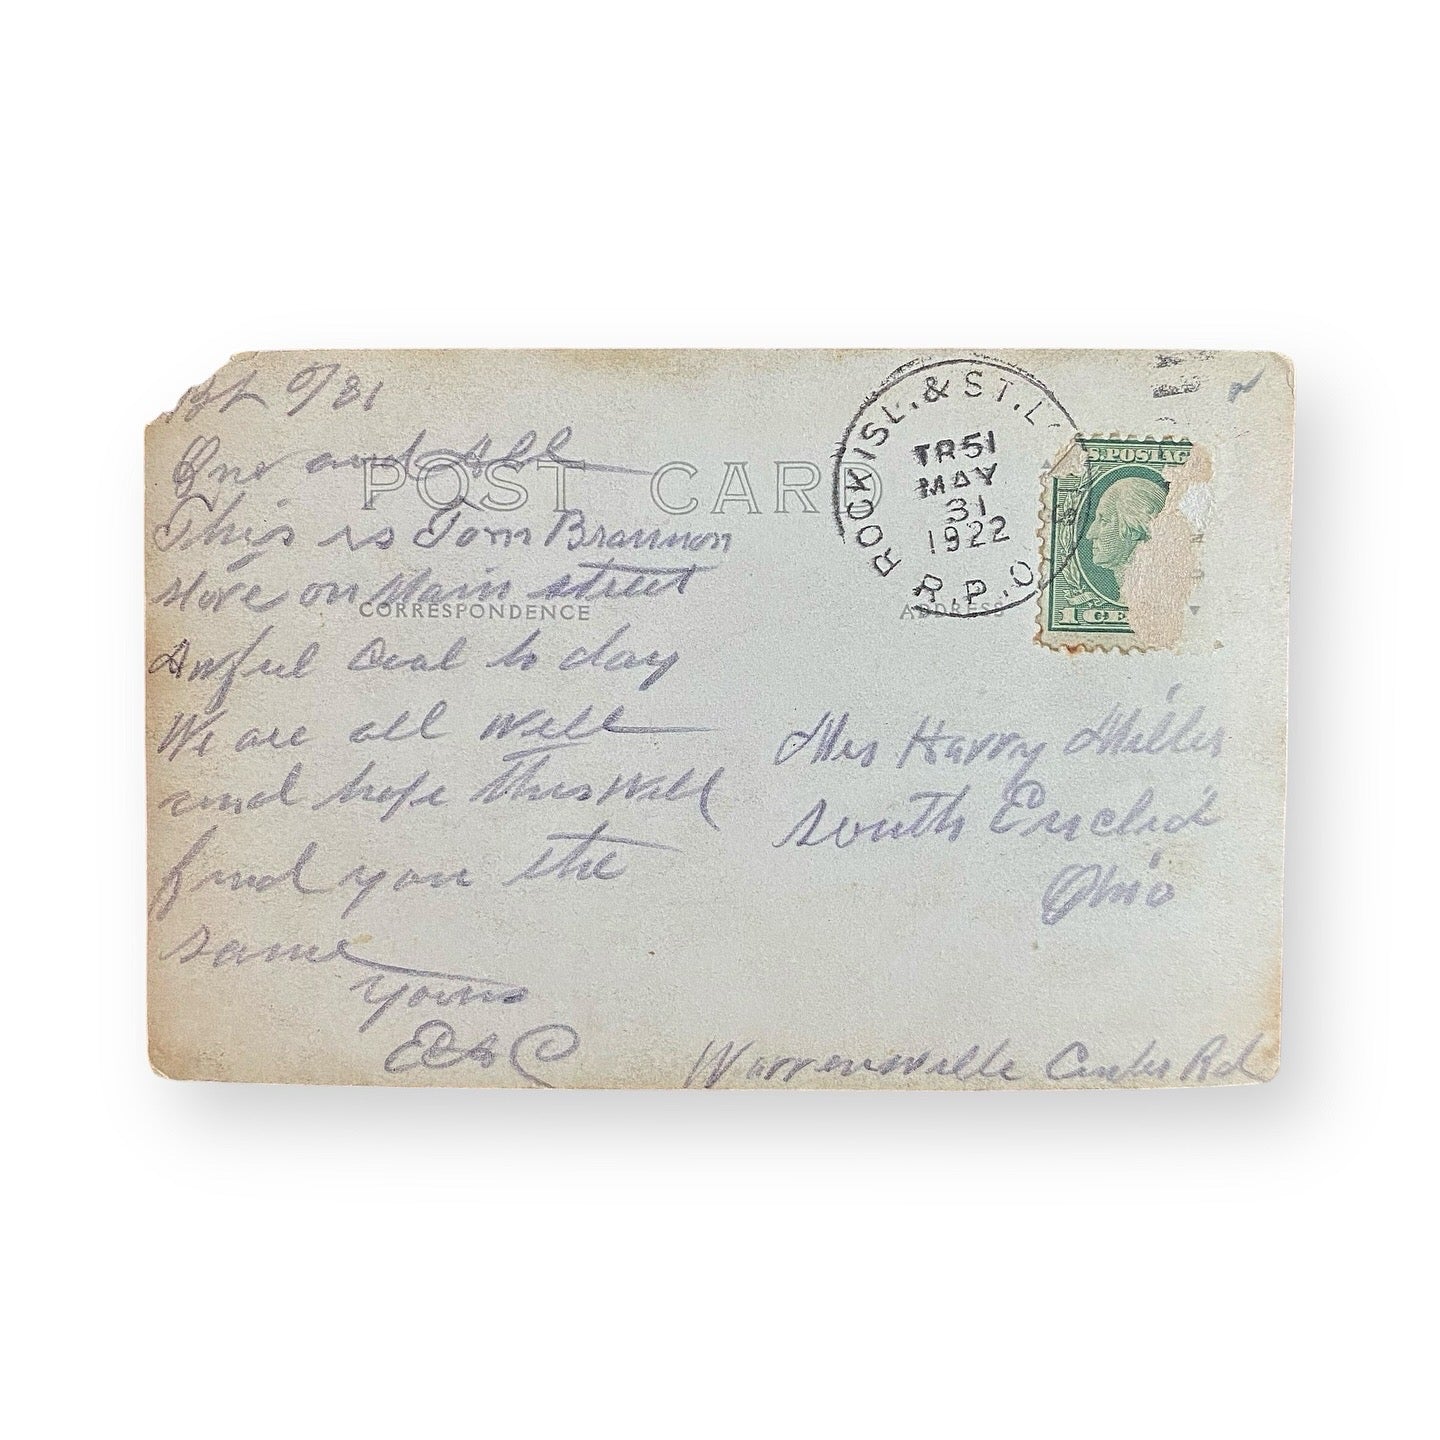 5/31
One and All
POST CARD
This is Tom Brannon
store on Main street
CORRESPONDENCE
Awful Cool to day
We are all Well
and hope this Will
find you the
same
Yours
ROCK ISL. & ST. L
TR 51
MAY
31
1922
R.P.O
S. POSTAG
1 CE
ADDRESS
Mrs Harry Miller
South Euclid
Ohio
Warrensville Center Rd